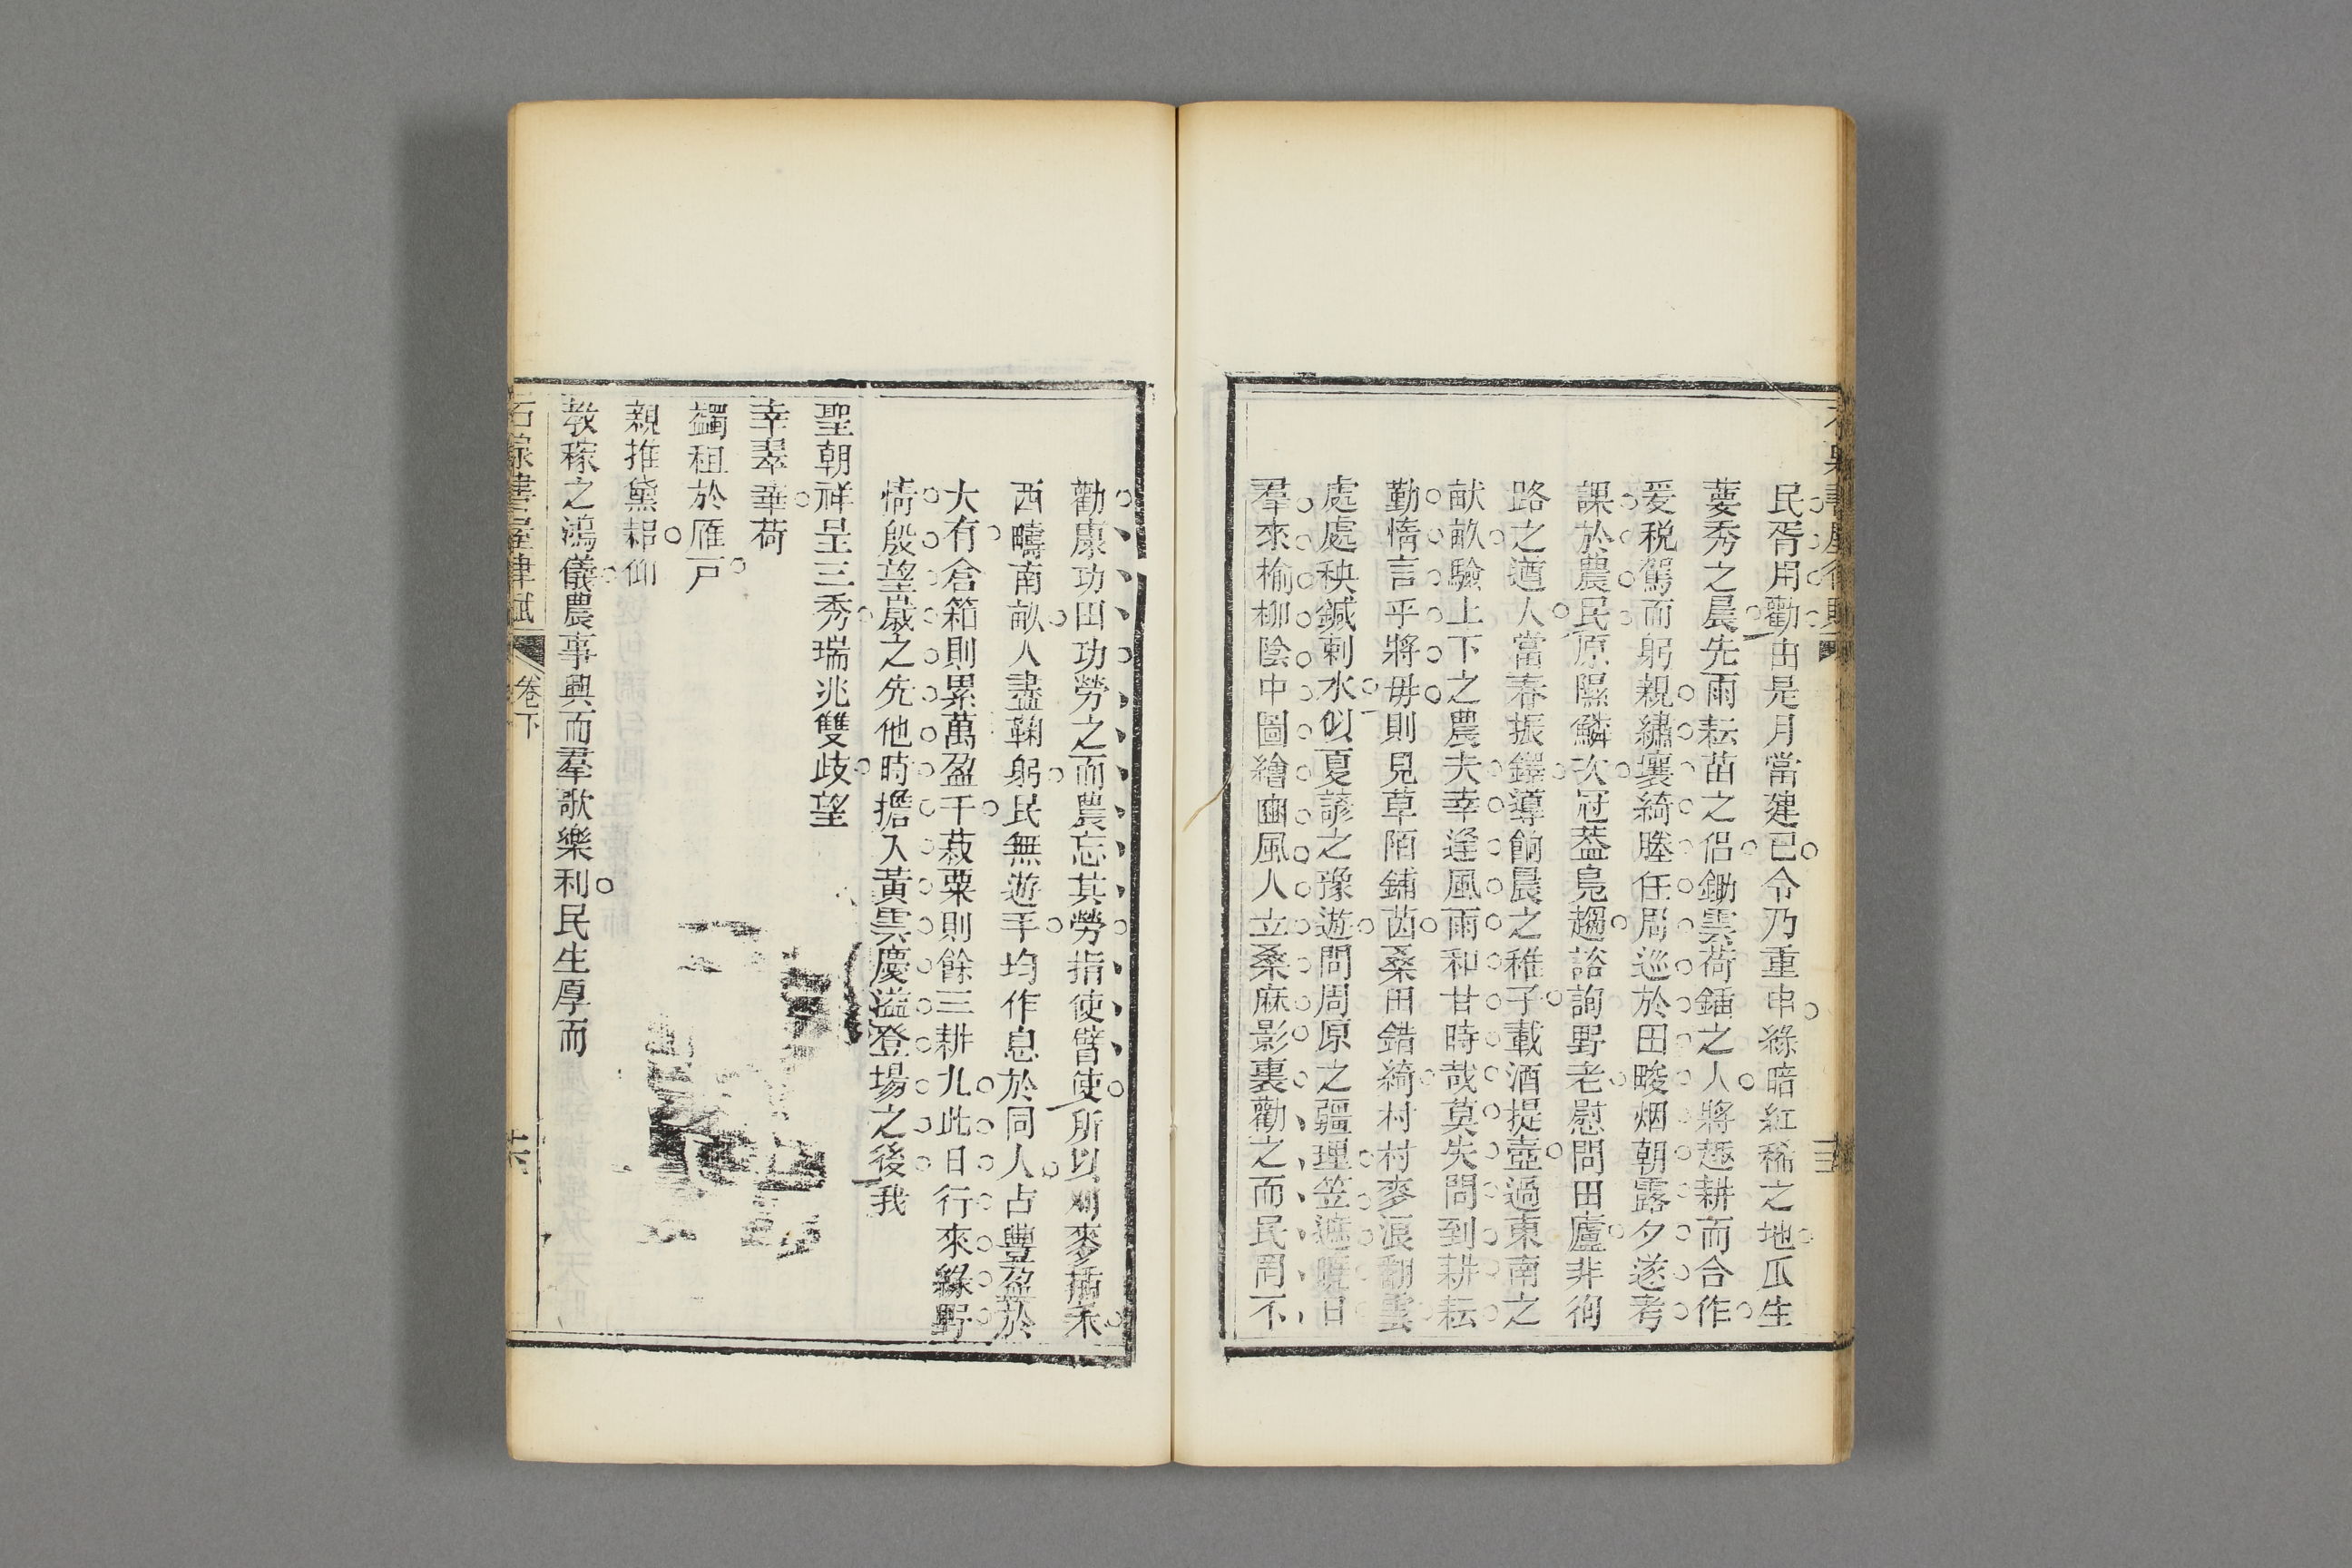 民胥用勸由是月當建巳令乃重申綠暗紅稀之地瓜生
葽秀之晨先雨耘苗之侶鋤雲荷鍤之人將趣耕而合作
爰稅駕而躬親繡壤綺塍任周巡於田畯烟朝露夕遂考
課於農民原隰鱗次冠葢鳧趨諮詢野老慰問田廬非徇
路之遒人當春振鐸導餉晨之稚子載酒提壺過東南之
畎畝驗上下之農夫幸逢風雨和甘時哉莫失問到耕耘
勤惰言乎將毋則見草陌鋪茵桑田錯綺村村麥浪翻雲
處處秧鍼刺水似夏諺之豫遊問周原之疆理笠遮曉日
羣來榆柳陰中圖繪豳風人立桑麻影裏勸之而民罔不
勸康功田功勞之而農忘其勞指使臂使所以刈麥插禾
西疇南畝人盡鞠躬民無遊手均作息於同人占豐盈於
大有倉箱則累萬盈千菽粟則餘三耕九此日行來綠野
情殷望歲之先他時擔入黃雲慶溢登場之後我
聖朝祥呈三秀瑞兆雙歧望
幸翠華荷
蠲租於雁戸
親推黛耜仰
教稼之鴻儀農事興而羣歌樂利民生厚而
石
書屋律賦
卷下